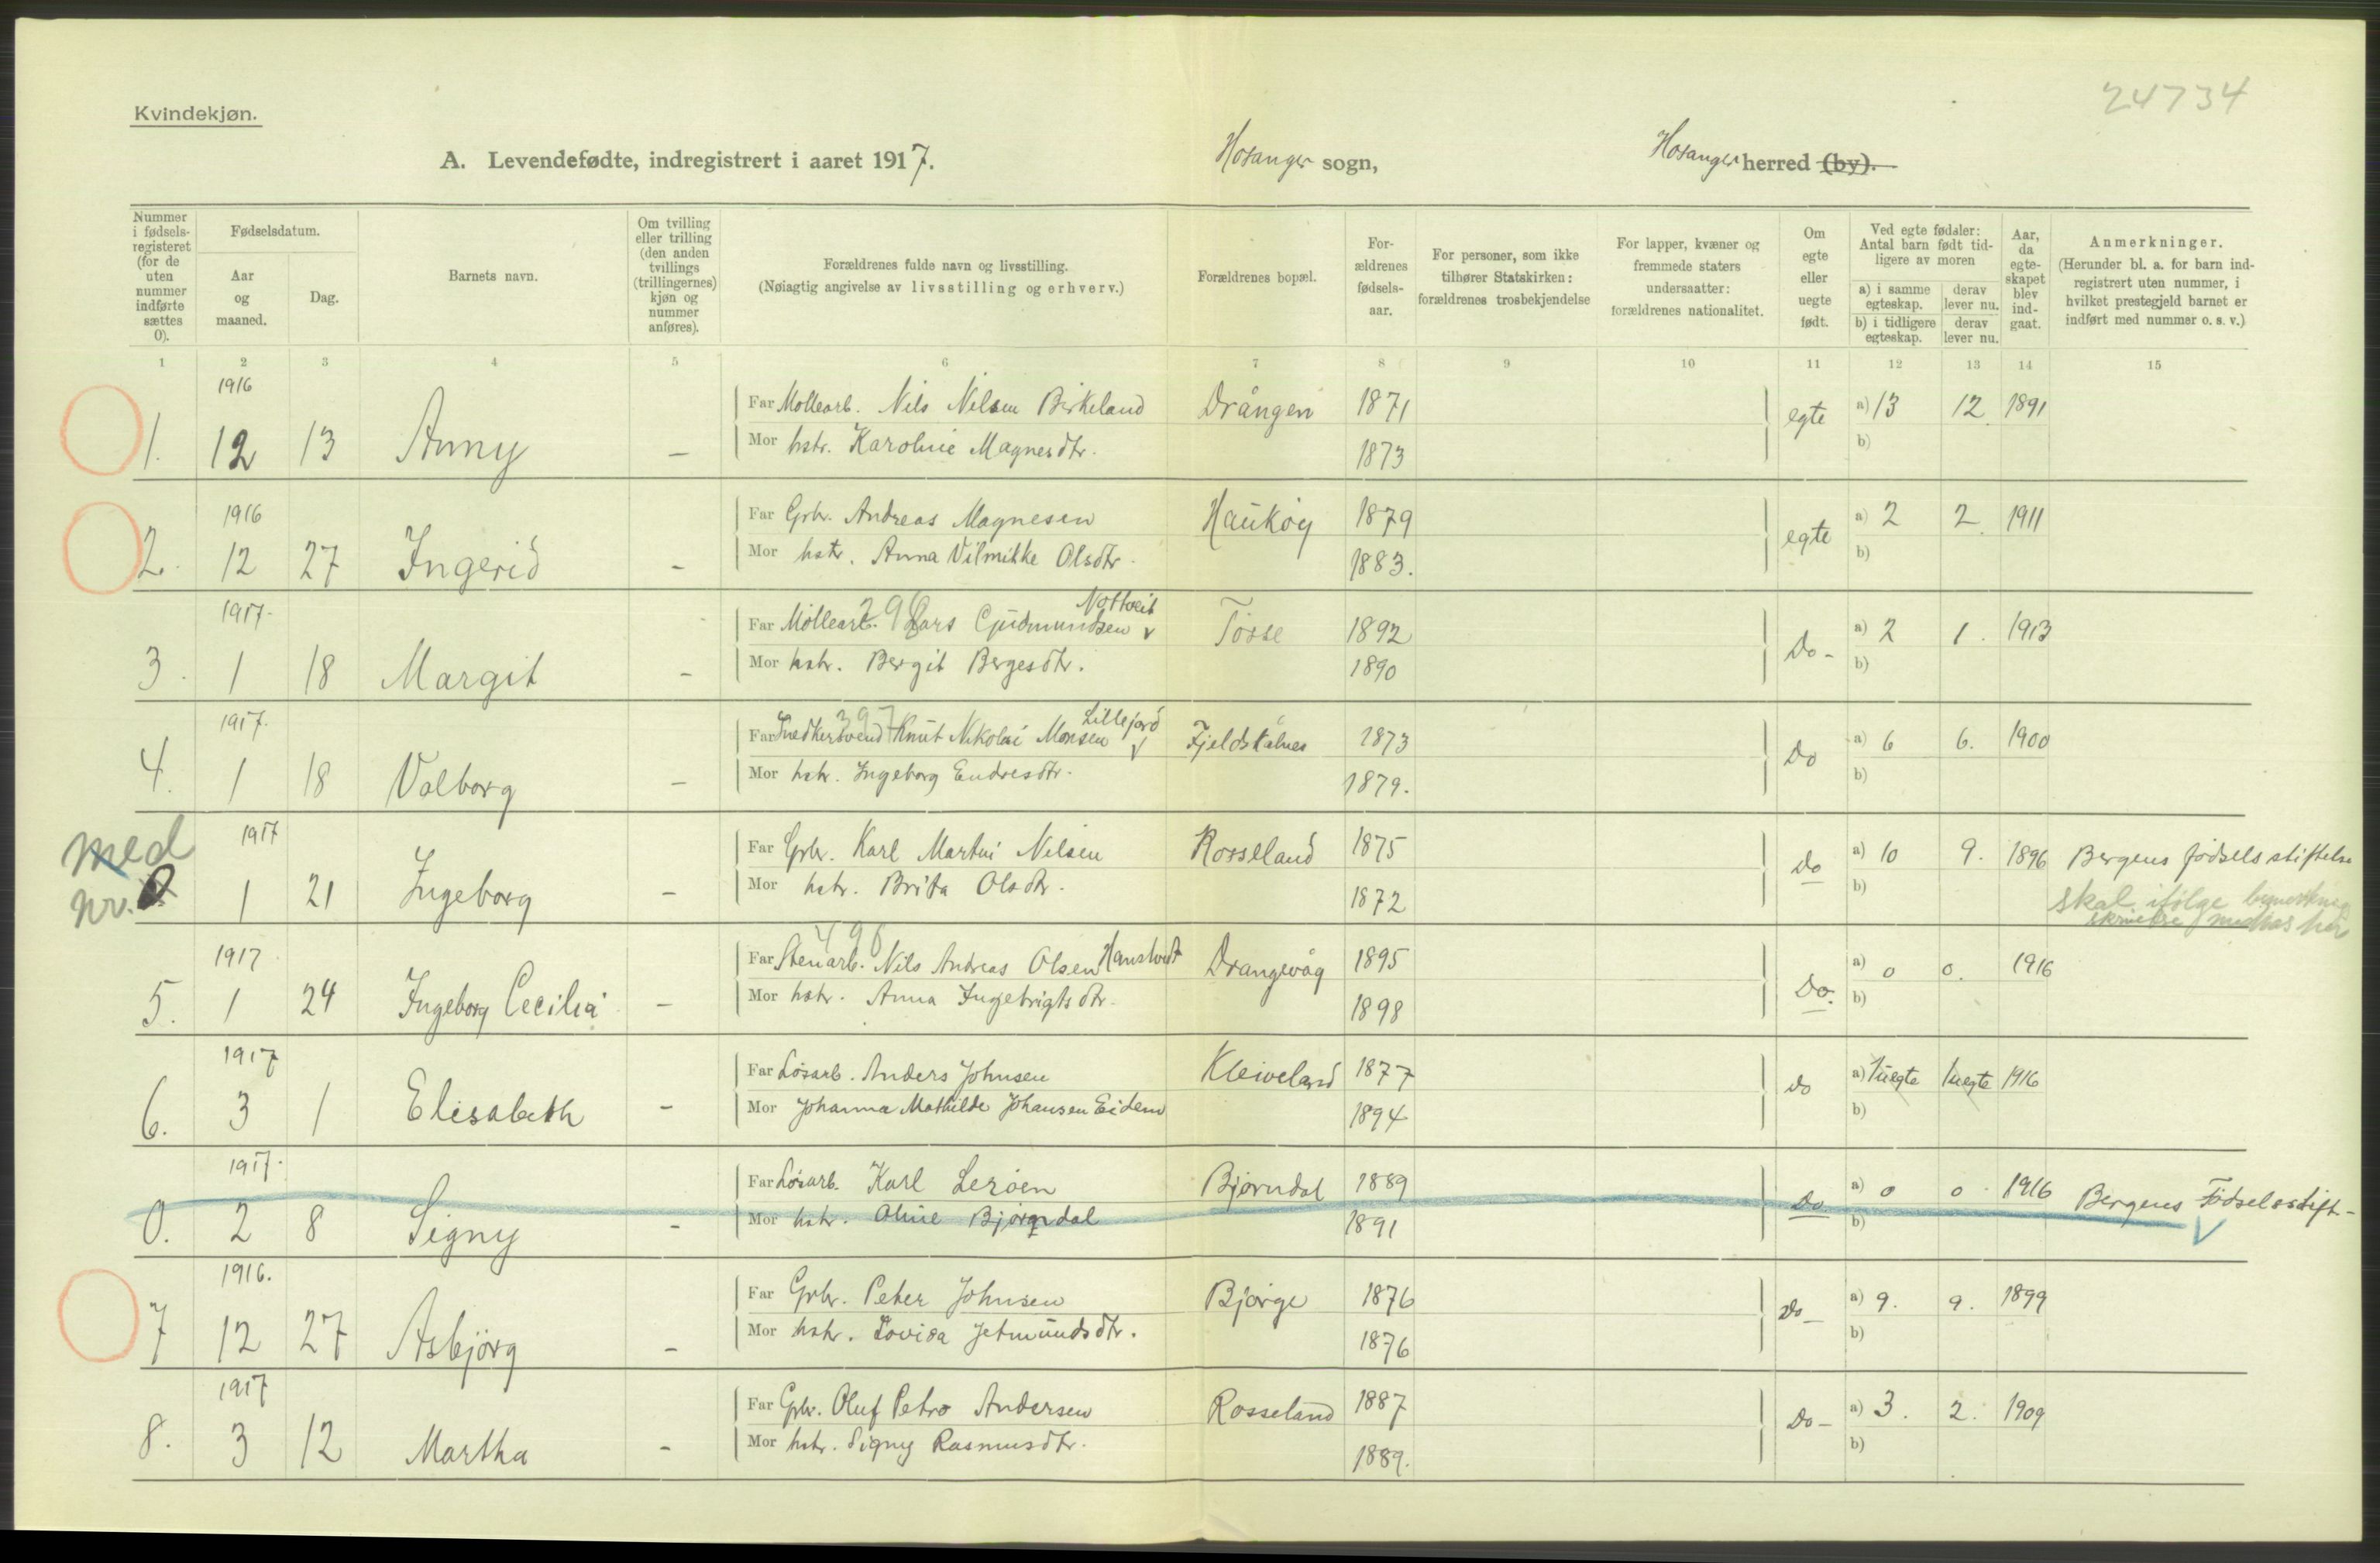 24734
Kvindekjøn.
A. Levendefødte, indregistrert i aaret 1917. Hosanger sogn, Hosanger herred (by).
Nummer i fødsels-registeret (for de uten nummer indførte sættes 0).
Fødselsdatum.
Aar og maaned.
Dag.
Barnets navn.
Om tvilling eller trilling (den anden tvillings (trillingernes) kjøn og nummer anføres).
Forældrenes fulde navn og livsstilling.
(Nøiagtig angivelse av livsstilling og erhverv.)
Forældrenes bopæl.
For-ældrenes fødsels-aar.
For personer, som ikke tilhører Statskirken: forældrenes trosbekjendelse
For lapper, kvæner og fremmede staters undersaatter: forældrenes nationalitet.
Om egte eller uegte født.
Ved egte fødsler: Antal barn født tid-ligere av moren
a) i samme egteskap. derav lever nu.
b) i tidligere egteskap. derav lever nu.
Aar, da egte-skapet blev ind-gaat.
Anmerkninger.
(Herunder bl. a. for barn ind-registrert uten nummer, i hvilket prestegjeld barnet er indført med nummer o. s. v.)
1 2 3 4 5 6 7 8 9 10 11 12 13 14 15
1916
Far Møllearb. Nils Nilsen Birkeland Drången 1871 egte a) 13 12 1891
1. 12 13 Anny — Mor hstr. Karoline Magnesdtr. 1873 b)
1916
Far Grbr. Andreas Magnesen Haukøy 1879 egte a) 2 2 1911
2. 12 27 Ingerid - Mor hstr. Anna Vilmikke Olsdtr. 1883. b)
1917.
Far Møllearb. Lars Gudmundsen Nottveit v Tosse 1892 Do- a) 2 1. 1913
3. 1 18 Margit - Mor hstr. Bergit Bergesdtr. 1890 b)
1917.
Far Snedkersvend 397 Knut Nikolai Monsen Lillejord v Fjeldskålnes 1873 Do a) 6 6. 1900
4. 1 18 Valborg — Mor hstr. Ingeborg Endresdtr. 1879. b)
med nr. 0
1917
Far Grbr. Karl Martin Nilsen Rosseland 1875 Do a) 10 9. 1896 Bergens fødselsstiftelse
1 21 Ingeborg - Mor hstr. Brita Olsdtr. 1872 b)
skal ifølge her
1917
Far Stenarb. 496 Nils Andreas Olsen Drangevåg 1895 Do. a) 0 0. 1916
5. 1 24 Ingeborg Cecilia - Mor hstr. Anna Ingebrigtsdtr. 1898 b)
1917
Far Løsarb. Anders Johnsen Kleiveland 1877 do a) 1uegte 1uegte 1916
6. 3 1 Elisabeth - Mor Johanna Mathilde Johansen Eidem 1894 b)
1917.
Far Løsarb. Karl Lerøen Bjørndal 1889 Do a) 0 0 1916 Bergens Fødselsstift-
0. 2 8 Signy - Mor hstr. Oline Bjørndal 1891 b) v
1916.
Far Grbr. Peter Johnsen Bjørge 1876 Do- a) 9. 9. 1899
7 12 27 Asbjørg - Mor hstr. Lovisa Jetmundsdtr. 1876 b)
1917
Far Grbr. Oluf Petro Andersen Rosseland 1887 Do- a) 3. 2. 1909
8. 3 12 Martha - Mor hstr. Signy Rasmusdtr. 1889. b)